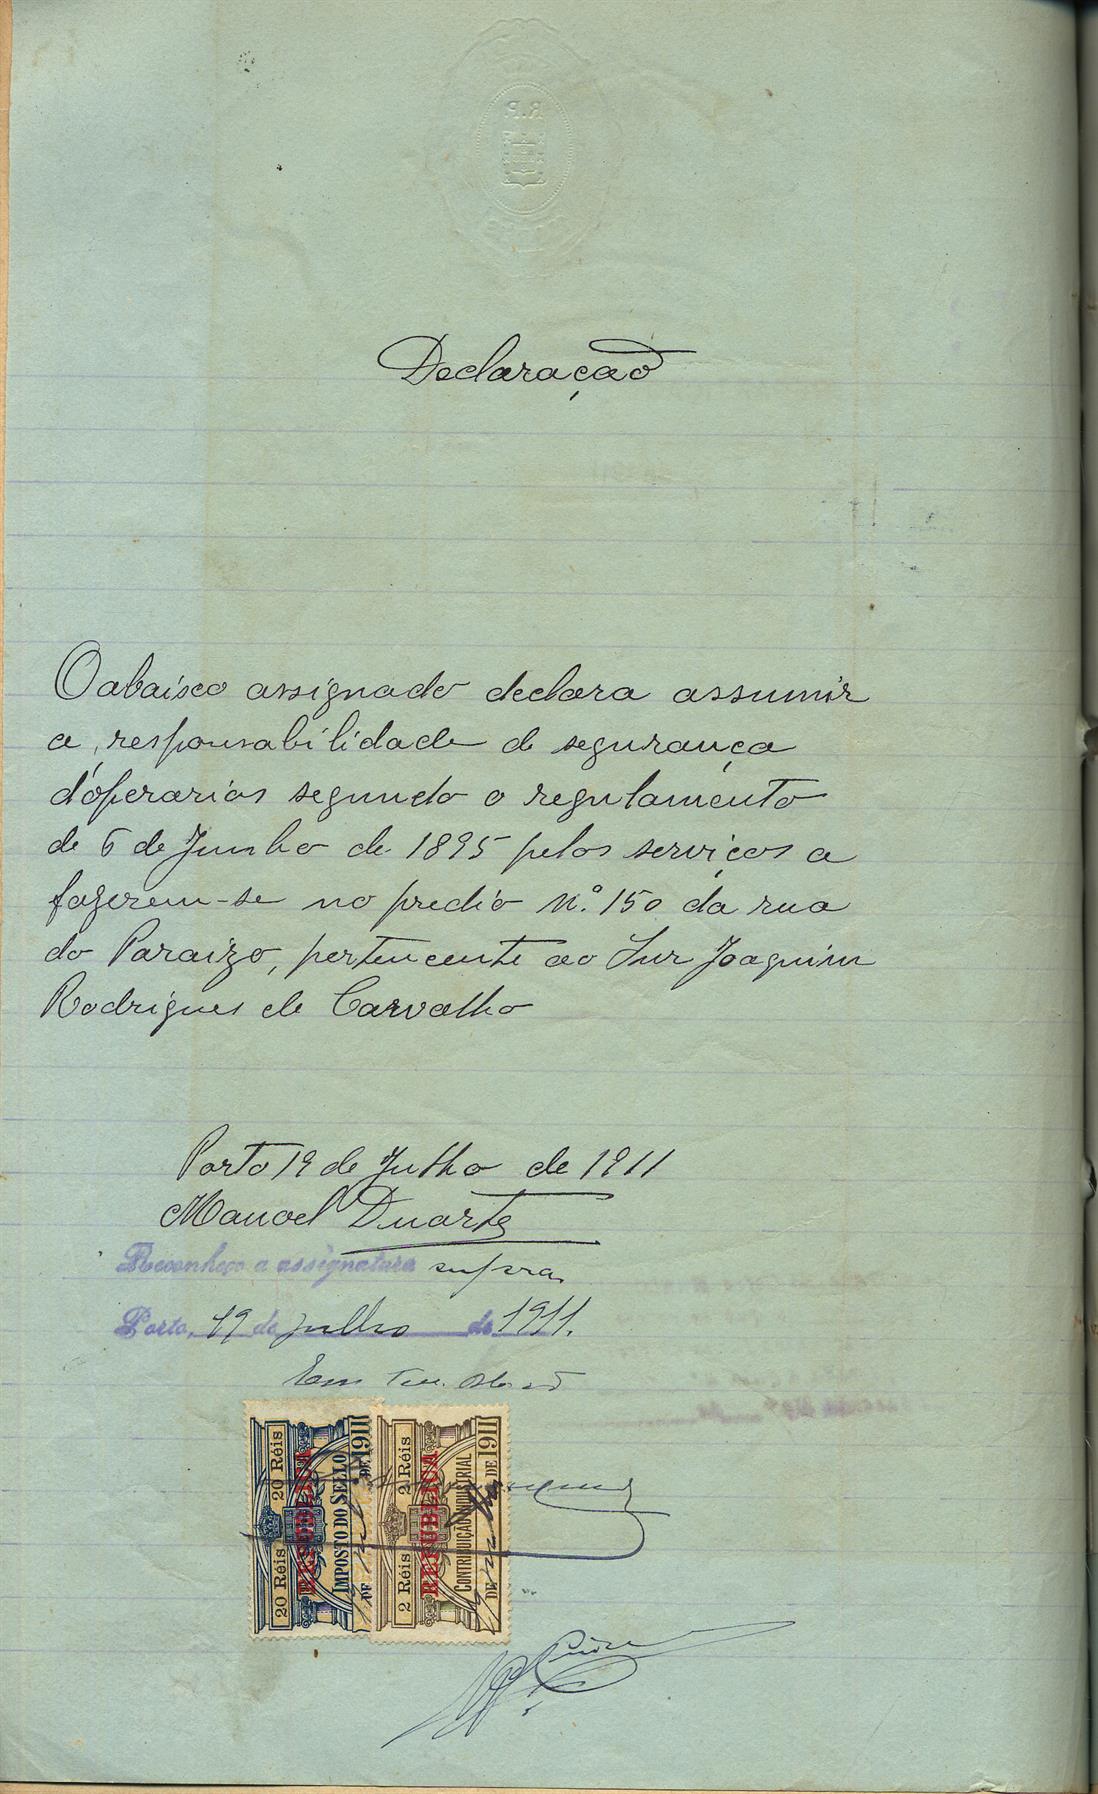 Declaração
O abaixo assignado declara assumir
a responsabilidade de segurança
d'operarios segundo o regulamento
de 6 de Junho de 1895 pelos serviços a
fazerem-se no predio n.º 150 da rua
do Paraizo, pertencente ao Snr Joaquim
Rodrigues de Carvalho
Porto 19 de Julho de 1911
Manoel Duarte
Reconheço a assignatura supra
Porto, 19 de julho de 1911.
Em
20 Réis 20 Réis
REPUBLICA
IMPOSTO DO SELLO
DE DE 1911
2 Réis 2 Réis
REPUBLICA
CONTRIBUIÇÃO INDUSTRIAL
DE DE 1911